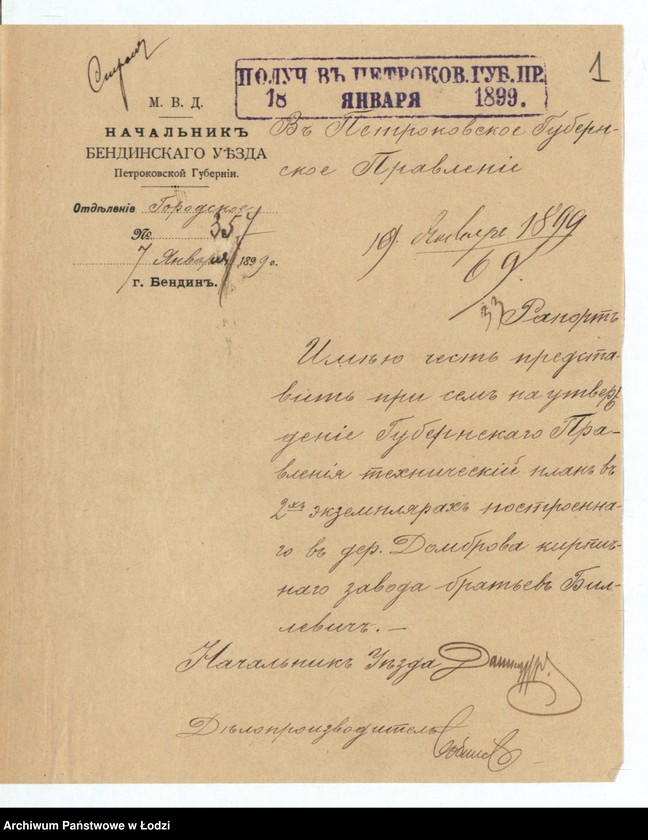 Строит
1
ПОЛУЧ. ВЪ ПЕТРОКОВ. ГУБ. ПР.
18 ЯНВАРЯ 1899.
М. В. Д.
НАЧАЛЬНИКЪ
БЕНДИНСКАГО УѢЗДА
Петроковской Губерніи.
Отдѣленіе Городское
№ 357
7 Января 1899 г.
г. Бендинъ.
Въ Петроковское Губерн-
ское Правленіе
19 Января 1899
69
Рапортъ
Имѣю честь предста-
вить при семъ на утверж-
деніе Губернскаго Пра-
вленія техническій планъ въ
2хъ экземплярахъ построенна-
го въ дер. Домброва кирпич-
наго завода братьевъ Бил-
левичъ. —
Начальникъ Уѣзда
Дѣлопроизводитель
Archiwum Państwowe w Łodzi